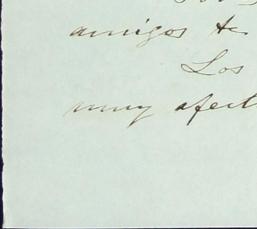 amigos te
Los
muy afect